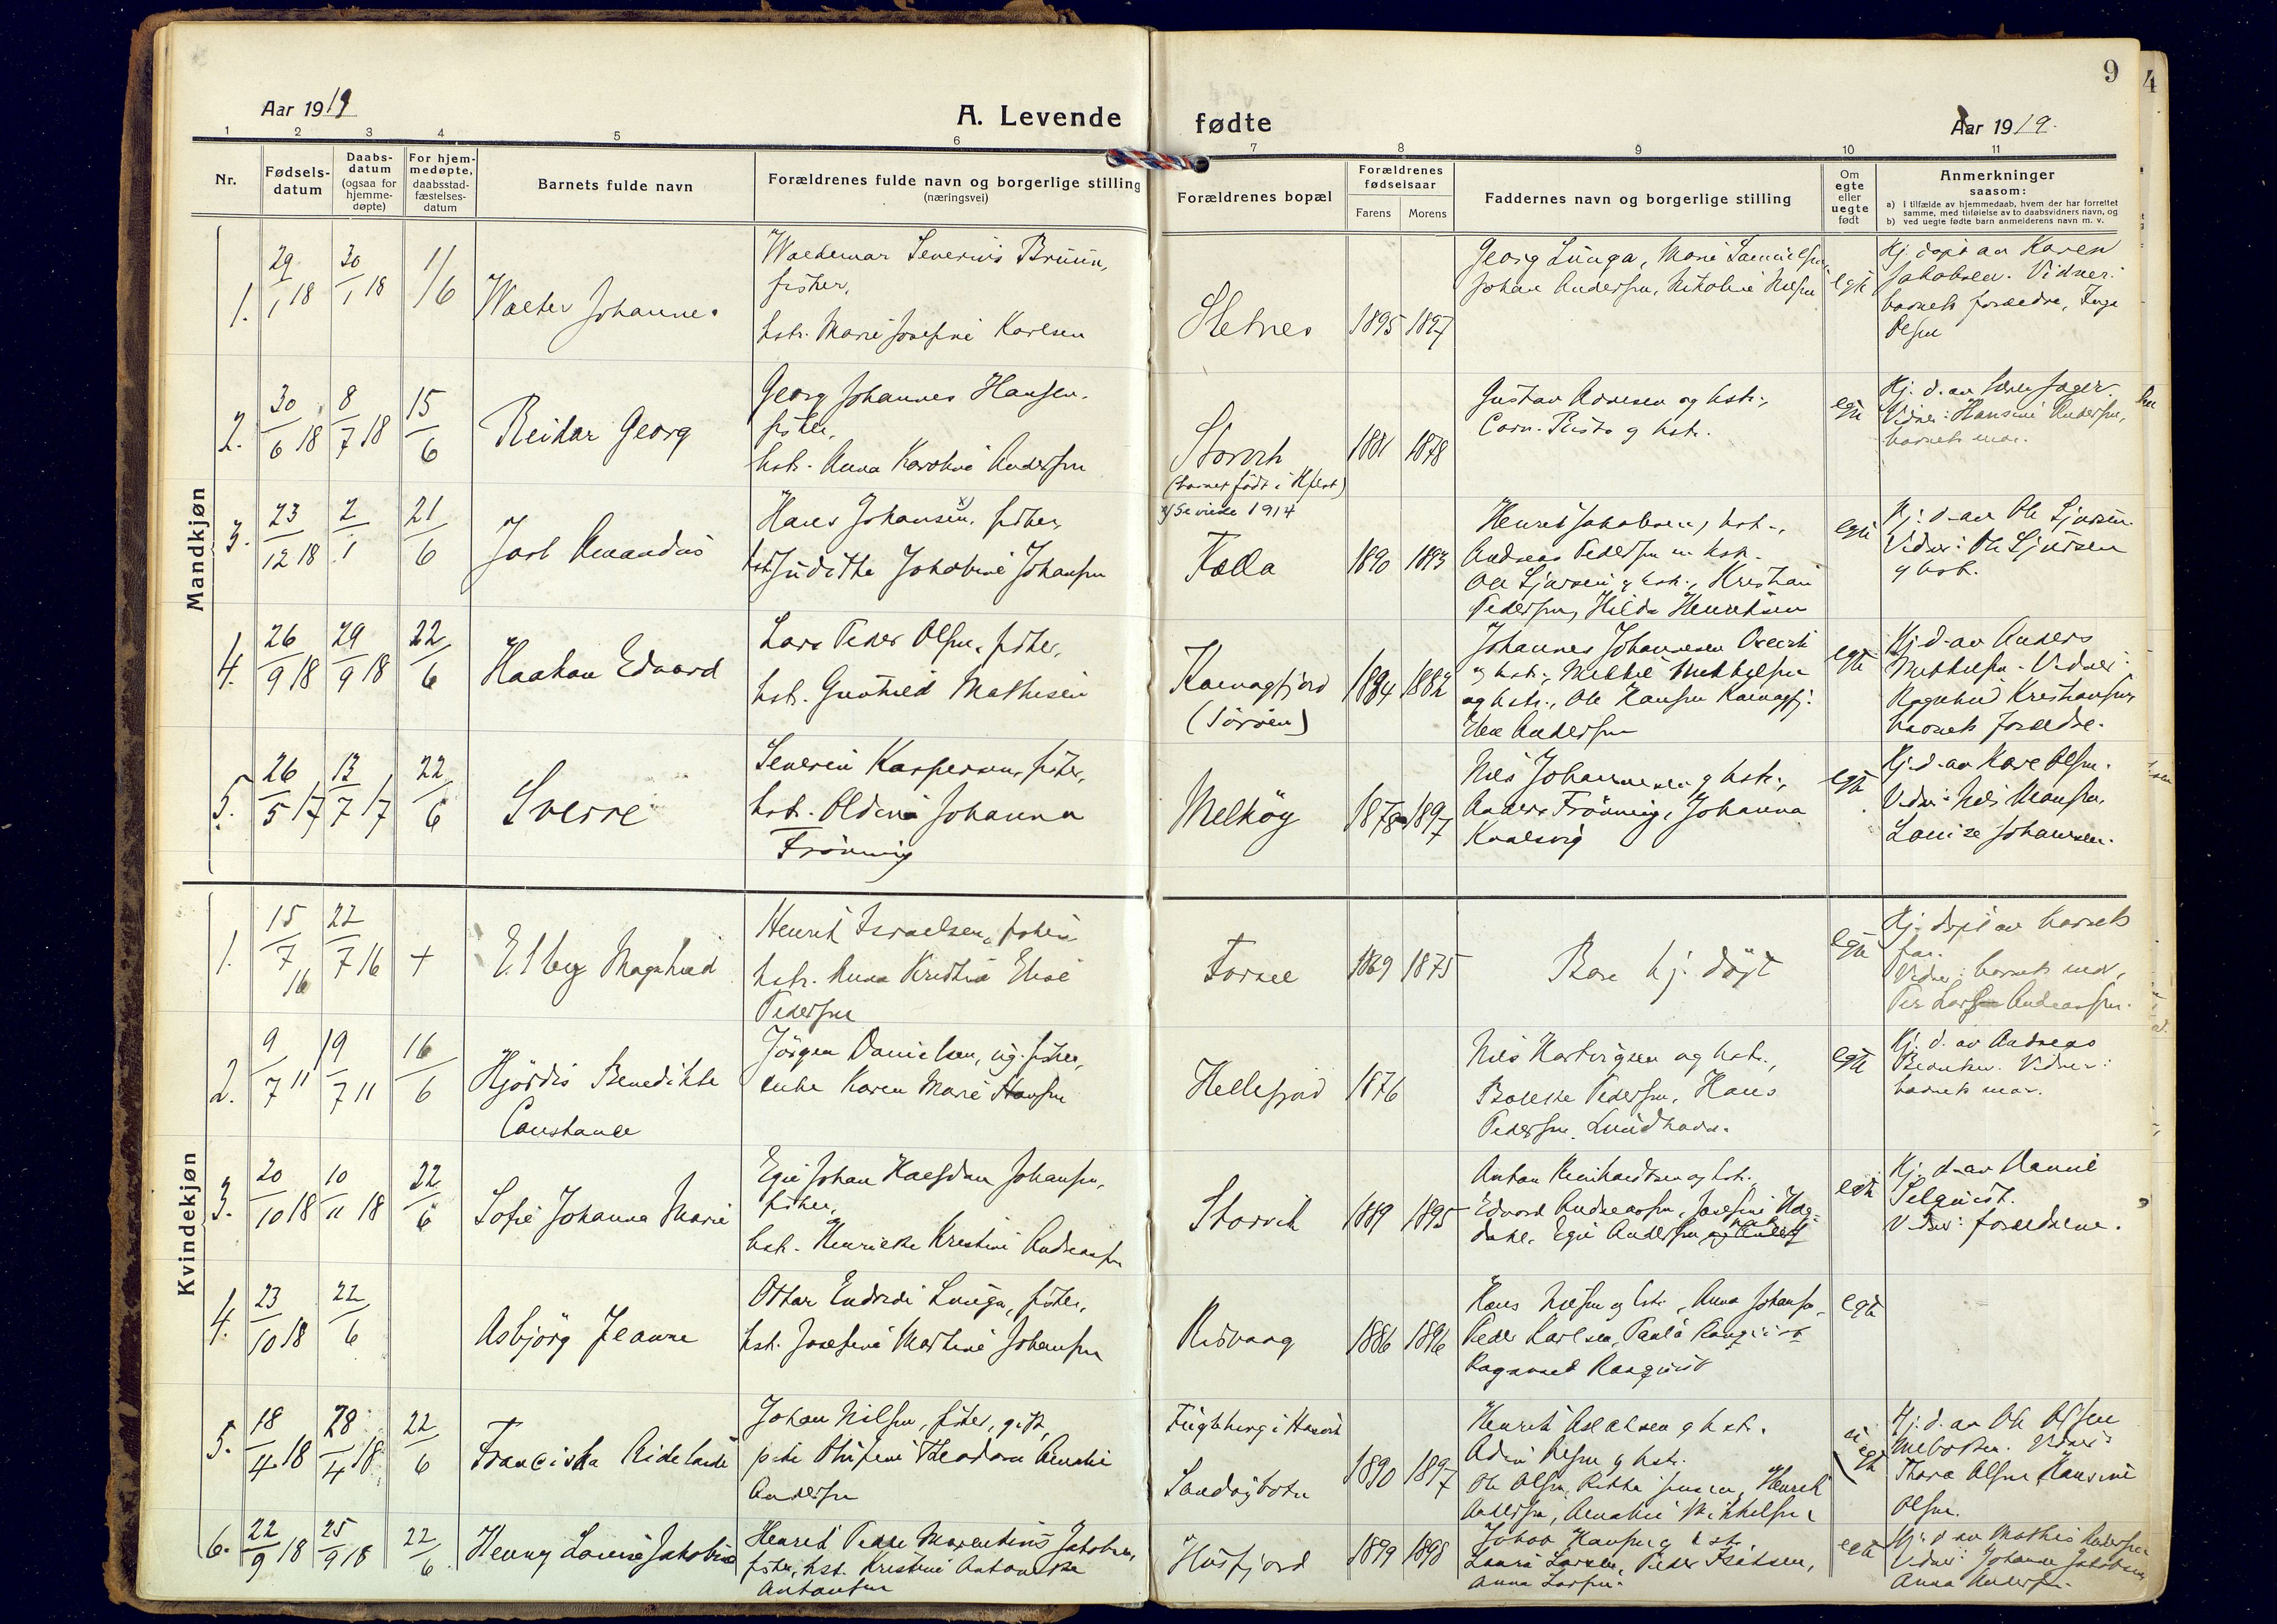 9
4
Aar 1919
A. Levende fødte
Aar 1919.
1 2 3 4 5 6 7 8 9 10 11
Nr.
Fødselsdatum
Daabsdatum (ogsaa for hjemmedøpte)
For hjemmedøpte, daabsstadfæstelsesdatum
Barnets fulde navn
Forældrenes fulde navn og borgerlige stilling
(næringsvei)
Forældrenes bopæl
Forældrenes fødselsaar
Farens Morens
Faddernes navn og borgerlige stilling
Om egte eller uegte født
Anmerkninger
saasom:
a) i tilfælde av hjemmedaab, hvem der har forrettet
samme, med tilføielse av to daabsvidners navn, og
b) ved uegte fødte barn anmelderens navn m. v.
Mandkjøn
1. 29/1 18 30/1 18 1/6
Walter Johannes
Waldemar Severius Bruun,
fisker,
hstr. Marie Josefine Karlsen
1895 1897
Georg Lunga, Marie Samuelsen,
Johan Andersen, Nikoline Nilsen
egte
Hj. døpt av Karen
Jakobsen. Vidner:
barnets forældre, Inga
Olsen
2. 30/6 18 8/7 18 15/6
Reidar Georg
Georg Johannes Hansen,
fisker,
hstr. Anna Karoline Andersen
Storvik
(barnet født i Hfest)
1881 1878
Gustav Arnesen og hstr.,
og hstr.
egte
Hj. d. av
Vidner: Hansine Andersen,
barnets mor.
3. 23/12 18 2/1 21/6
Jarl Amandus
Hans Johansen, x) fisker,
hstr. Judithe Jakobine Johansen
x) Se 1914
Fælla
1890 1893
Henrik Jakobsen, hstr.,
Andreas Pedersen m. hstr.
Ole Sjursen og hstr., Kristian
Pedersen, Hilda Henriksen
egte
Hj. d. av Ole Sjursen.
Vidner: Ole Sjursen
og hstr.
4. 26/9 18 29/9 18 22/6
Haakon Edvard
Lars Peder Olsen, fisker,
hstr. Gunhild Mathisen
Kornagfjord
(Sørøen)
1884 1882
Johannes Johannesen
og hstr., Mikkel Mikkelsen
og hstr., Ole Hansen
Andersen
egte
Hj. d. av Anders
Mikkelsen. Vidner:
Ragnhild Kristiansen,
barnets forældre.
5. 26/5 17 13/7 17 22/6
Sverre
Severin Kaspersen, fisker,
hstr. Oldine Johanna
Frönning
Melkøy
1878 1897
Nils Johannesen og hstr.,
Anders Frönning, Johanna
Kvalsvig
egte
Hj. d. av Kare Olsen.
Vidner: Nils Monsen,
Louise Johansen.
Kvindekjøn
1. 15/7 16 22/7 16 +
Elbeg Magnhild
Henrik Israelsen, fisker
hstr. Anna Kristia Elise
Pedersen
1869 1875
Bare hj. døpt
egte
Hj. døpt av barnets
far.
Vidner: barnets mor,
Andreassen.
2. 9/7 11 19/7 11 16/6
Hjördis Benedikte
Constance
Jörgen Danielsen, ug. fisker,
enke Karen Marie Hansen
Hellefjord
1876
Nils Hartvigsen og hstr.,
Bolette Pedersen, Hans
Pedersen, Lundhavn.
egte
Hj. d. av Andreas
Vidner:
barnets mor.
3. 20/10 18 10/11 18 22/6
Sofie Johanna Marie
Egil Johan Halfdan Johansen,
fisker,
hstr. Henrikke Kristine Andreassen
Storvik
1889 1895
Anton Reinhardtsen og hstr.,
Edvard Andreassen, Josefine
Egil Andersen
egte
Hj. d. av Daniel
Selqvist.
Vidner: forældrene.
4. 23/10 18 22/6
Asbjörg Jeanne
Ottar Endride Lunga, fisker,
hstr. Josefine Martine Johansen
Risvaag
1886 1896
Hans Nilsen og hstr., Anna Johansen,
Peder Karlsen, Paula Ranqvist
Ragnvald Ranqvist
egte
5. 18/4 18 28/4 18 22/6
Franciska Aidelaide
Johan Nilsen, fisker, gift,
pike Theodora Amalie
Andersen
Fuglberg i Hasvik
Sandøybotn
1890 1897
Henrik og hstr.
Olsen og hstr.
Ole Olsen, Henrik
Andersen, Amalie Mikkelsen
egte
Hj. d. av Ole Olsen
Vidner:
Thora Olsen, Hansine
Olsen.
6. 22/9 18 25/9 18 22/6
Henny Louise Jakobine
Henrik Peder Marentius Jakobsen,
fisker, hst. Kristine Antonette
Antonsen
Husfjord
1899 1898
Johan Hansen og hstr.
Laura Larsen, Peder Isaksen,
Anna Larsen.
egte
Hj. d. av Mathis Andersen
Vidner: Johanne Jakobsen,
Anna Andersen.